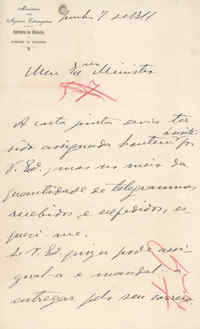 Ministerio
dos
Negocios Estrangeiros
Junho 7 de 1911
Meu Exmo Ministro
A carta junta devia ter
sido assignada hontem por
V. Exa, mas no meio da
quantidade de telegrammas
recebidos, e expedidos, es-
queci-me.
Se V. Exa pode assi-
gnal-a e mandal-a
entregar pelo seu correio